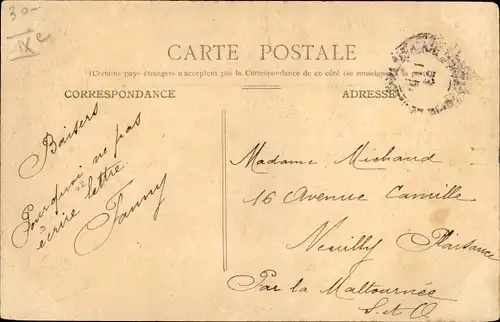 30-
IXe
CARTE POSTALE
(Certains pays étrangers n'acceptent pas la Correspondance de ce côté (se renseigner à la
CORRESPONDANCE
ADRESSE
Baisers
Pourquoi ne pas
écrire lettre.
Fanny
Madame Michaud
16 Avenue Camille
Neuilly Plaisance
Par la Maltournée
S-et-O